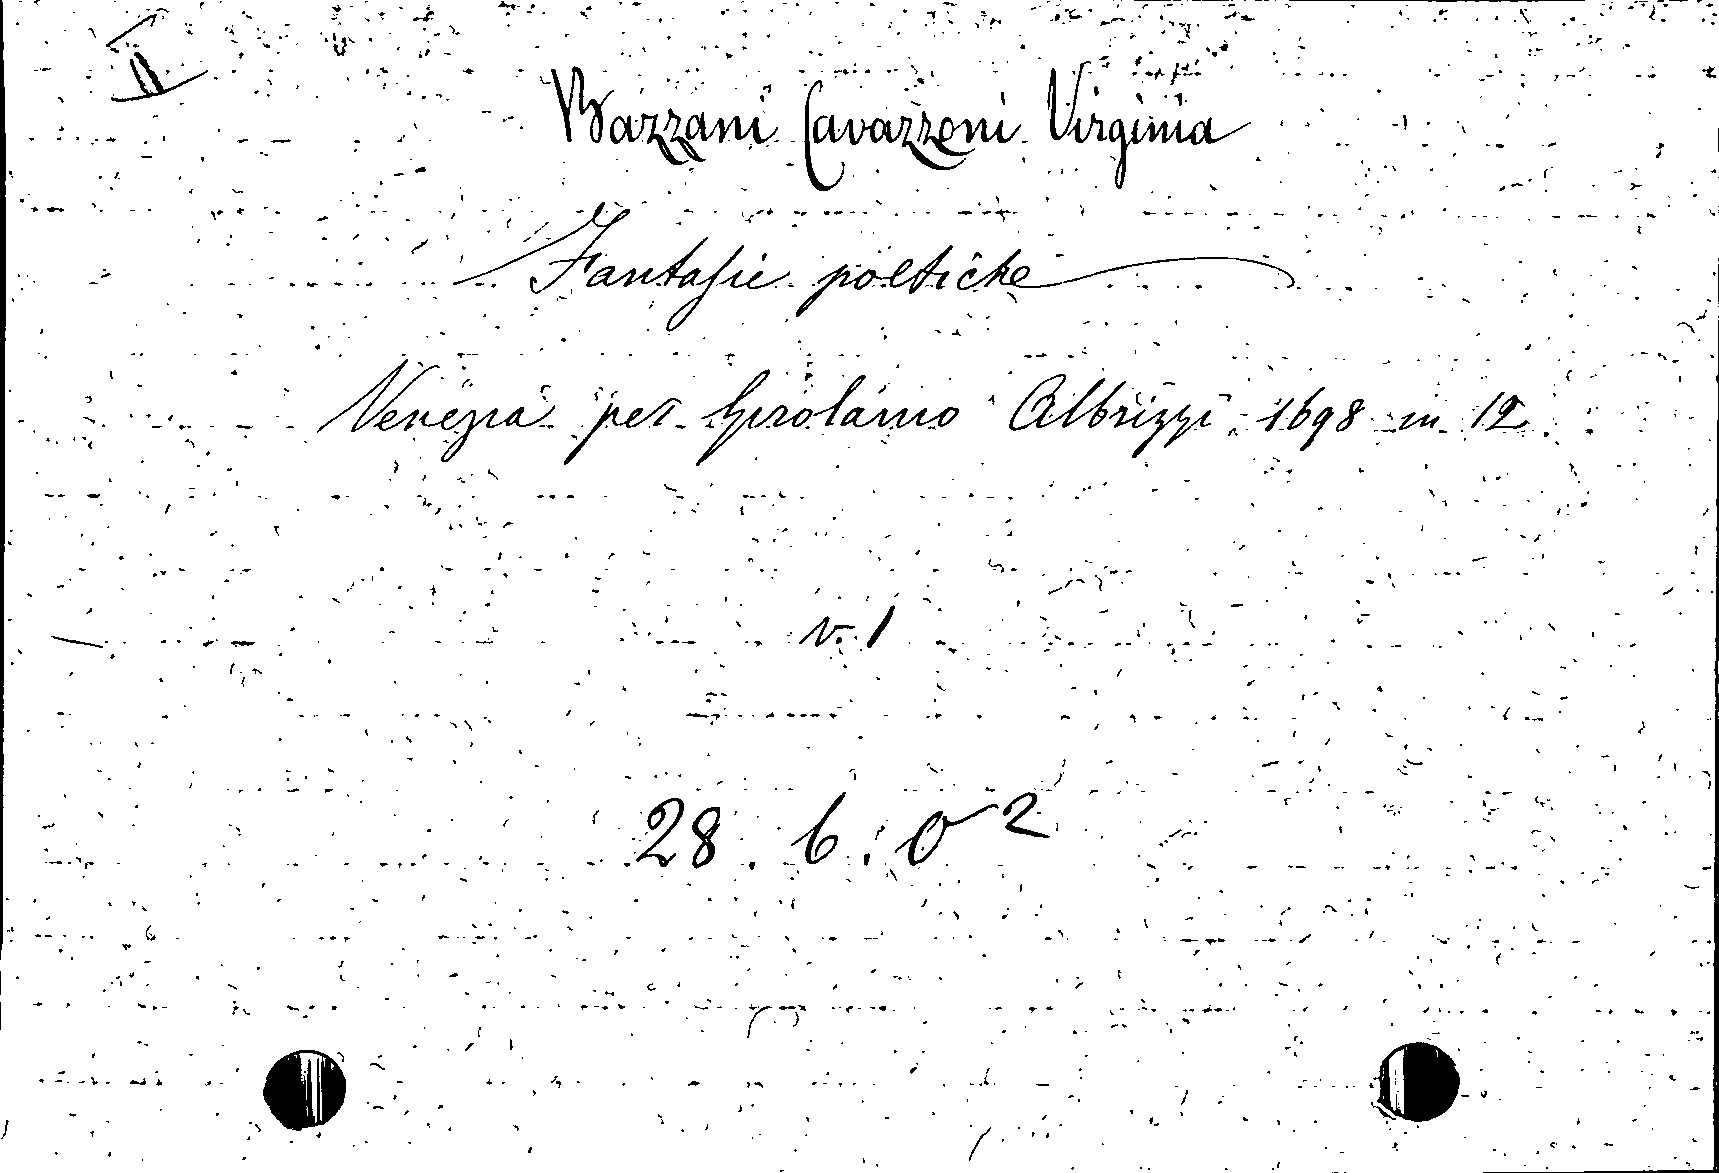 II
Bazzani Cavazzoni Virginia
Fantasie poetiche
Venezia per Girolamo Albrizzi 1698 in 12
v. 1
28. 6. O 2